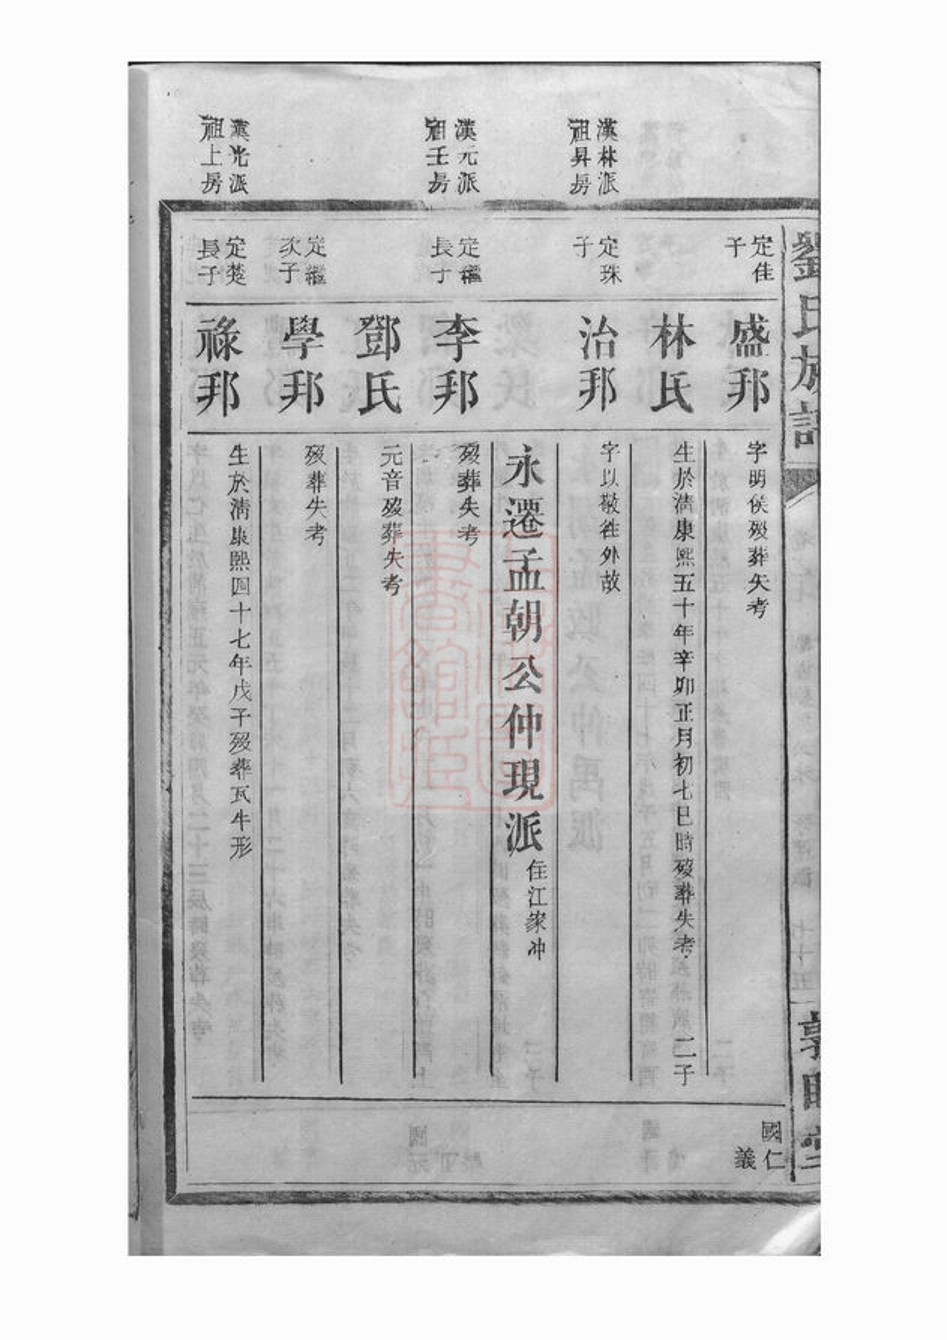 劉氏族譜
定佳
子
盛邦
字明侯歿葬失考
國仁
義
林氏
生於清康熙五十年辛卯正月初七巳時歿葬失考
二子
漢林派
祖昇房
定珠
子
治邦
字以敬徃外故
永遷孟朝公仲現派
住江家冲
漢元派
祖壬房
定繼
長子
李邦
歿葬失考
鄧氏
元音歿葬失考
定繼
次子
學邦
歿葬失考
派
祖上房
定楚
長子
祿邦
生於清康熙四十七年戊子歿葬瓦牛形